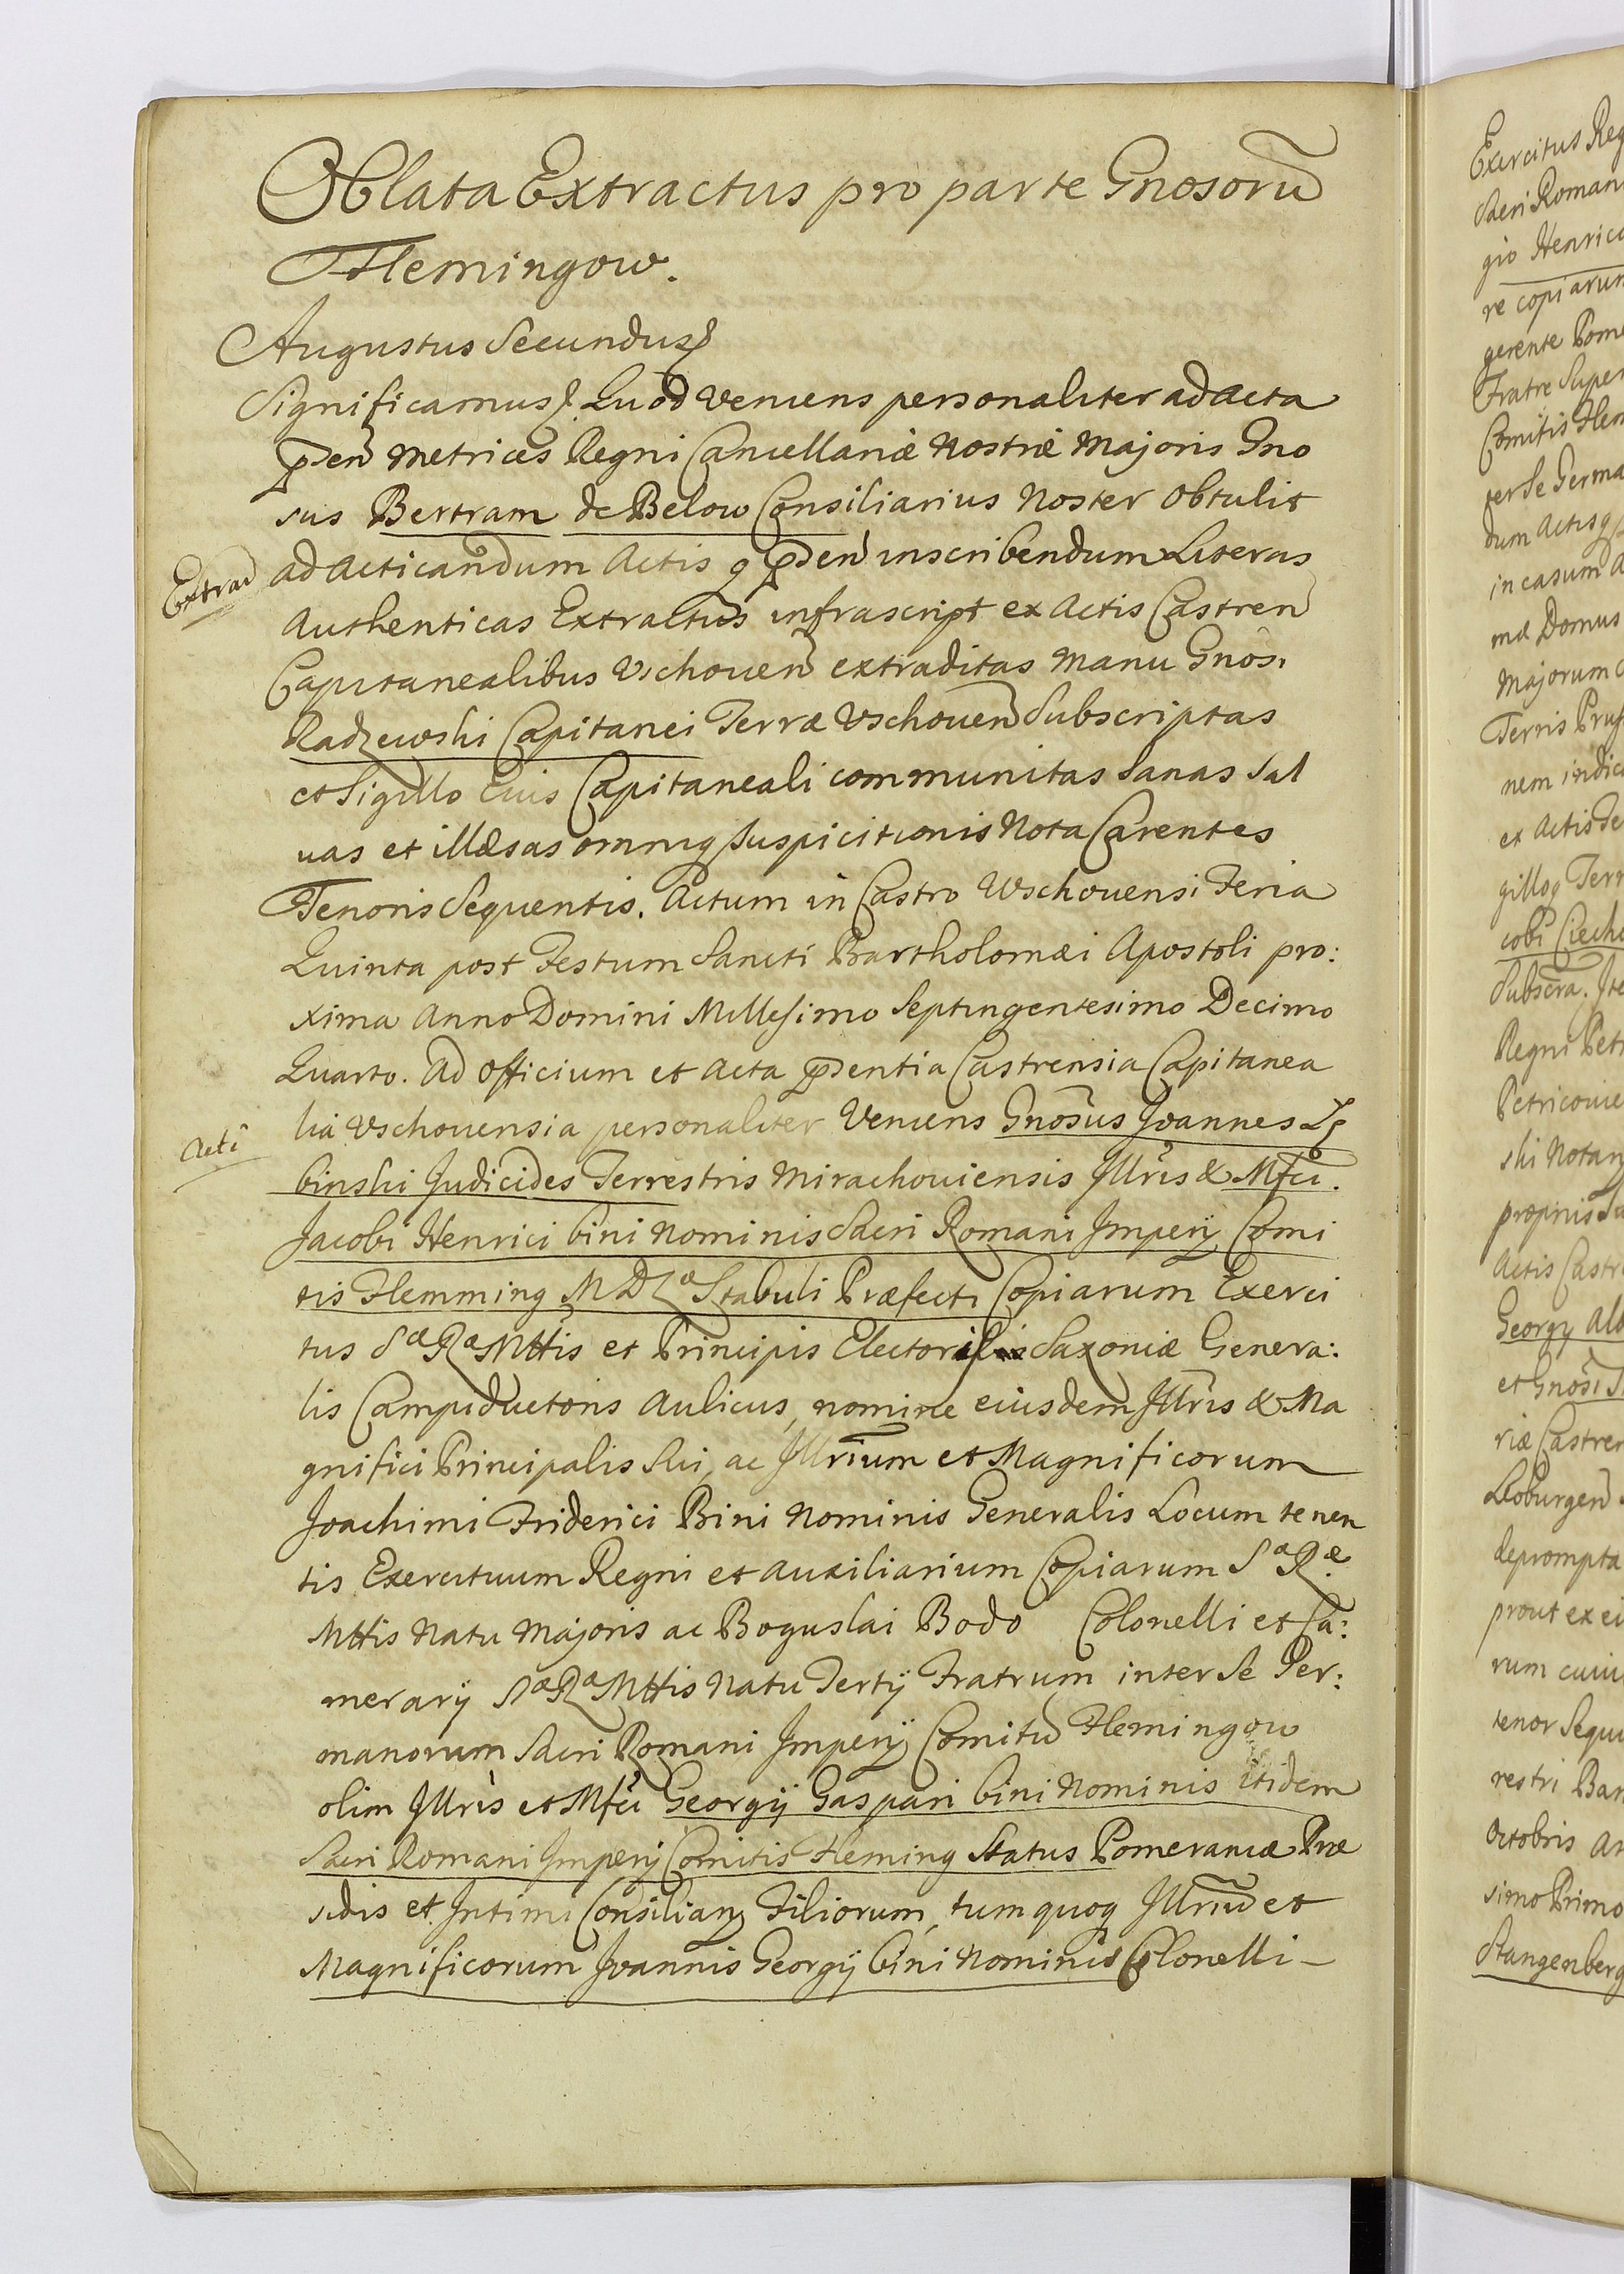 Oblata Extractus pro parte Gnosorū
Flemingow.
Augustus Secundus
Significamus Quod veniens personaliter ad acta
pñen Metrices Regni Cancellariæ Nostræ Majoris Gno
sus Bertram de Below Consiliarius Noster Obtulit
Extrad
ad acticandum Actis q pñen inscribendum Literas
Authenticas Extractus infrascript ex Actis Castren
Capitanealibus Vschouen extraditas Manu Gnosi
Radzewski Capitanei Terræ Vschouen Subscriptas
et Sigillo Eius Capitaneali communitas Sanas Sal
uas et illæsas omniq suspicitionis Nota Carentes
Tenoris Sequentis. Actum in Castro Wschouensi Feria
Quinta post Festum Sancti Bartholomæi Apostoli pro:
xima Anno Domini Millesimo Septingentesimo Decimo
Quarto. Ad Officium et Acta pñentia Castrensia Capitanea
lia Vschouensia personaliter Veniens Gnosus Joannes
Acti
binski Judicides Terrestris Mirachouiensis Jllris & Mfci.
Jacobi Henrici bini Nominis Sacri Romani Jmperÿ Comi
tis Flemming M D L Stabuli Præfecti Copiarum Exerci
tus Sæ Ræ Mttis et Principis Saxoniæ Genera:
lis Campiductoris Aulicus, nomine eiusdem Jllris & Ma
gnifici Principalis Sui, ac Jllrium et Magnificorum
Joachimi Friderici Bini Nominis Generalis Locum tenen
tis Exercituum Regni et Auxiliarium Copiarum Sæ Ræ
Mttis Natu Majoris ac Boguslai Bodo Colonelli et Ca:
merarÿ Sæ Ræ Mttis Natu Tertÿ Fratrum inter Se Ger:
manorum Sacri Romani Jmperÿ Comitū Flemingow
olim Jllris et Mfci Georgÿ Gaspari bini Nominis itidem
Sacri Romani Jmperÿ Comitis Fleming Status Pomeraniæ Præ
sidis et Jntimi Consiliarÿ Filiorum, tum quoq Jllriū et
Magnificorum Joannis Georgÿ bini Nominis Colonelli –
Exercitus Reg
Sacri Roman
gio Henrico
re copiarum
gerente Pome
Fratre Super
Comitis Flem
ter Se Germa
dum Actisq
in casum a
mæ Domus
Majorum
Terris Pruss
nem indic
ex Actis Te
gilloq Terr
cobi Ciecho
Subscra. Jte
Regni Petr
Petricouie
ski Notar
proprijs Su
Actis Castr
Georgÿ Alb
et Gnosi
riæ Castren
Deprompta
prout ex ei
rum cuiu
tenor Sequi
restri Bar
Octobris An
simo Primo
Stangenberg